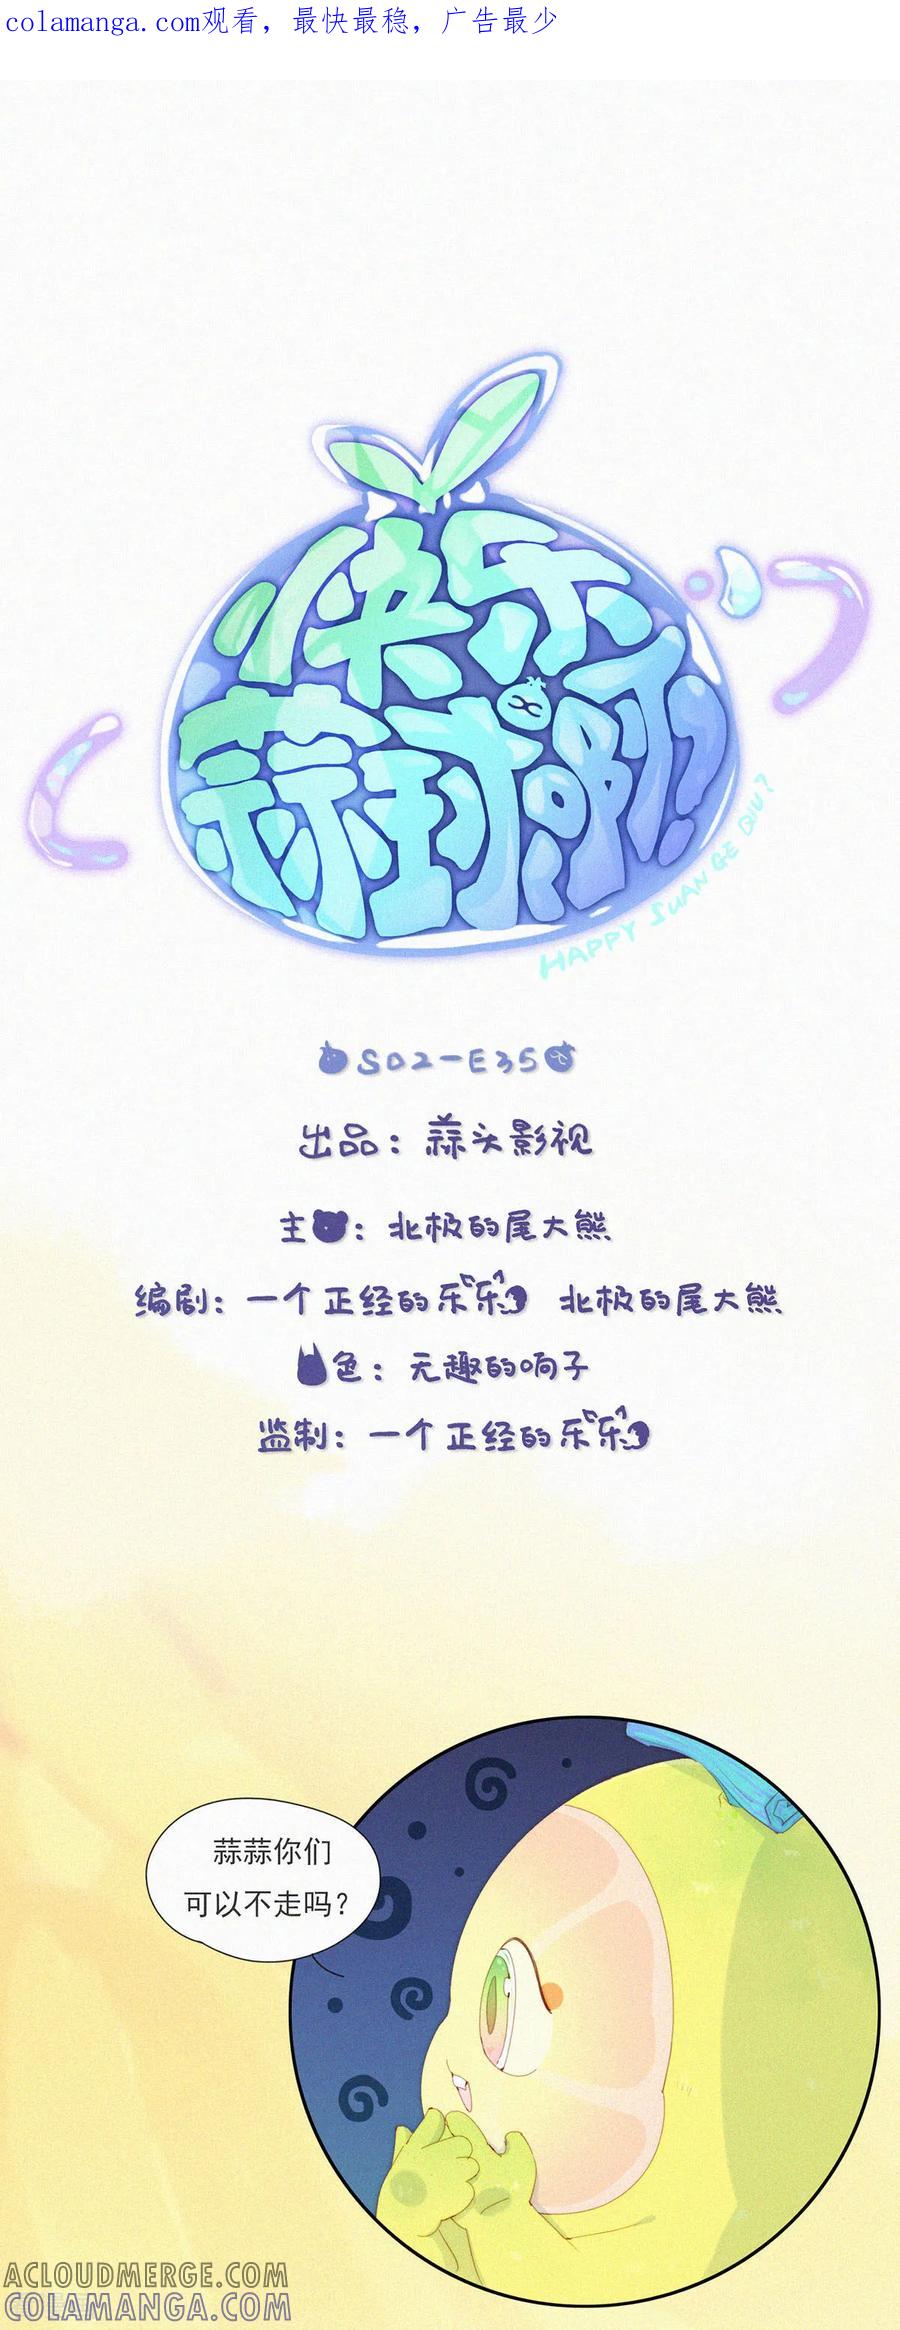 colamanga.com观看，最快最稳，广告最少
快乐
蒜球啊!
HAPPY SUAN GE QIU?
S02-E35
出品：蒜头影视
主：北极的尾大熊
编剧：一个正经的乐乐 北极的尾大熊
色：无趣的响子
监制：一个正经的乐乐
蒜蒜你们
可以不走吗？
ACLOUDMERGE.COM
COLAMANGA.COM